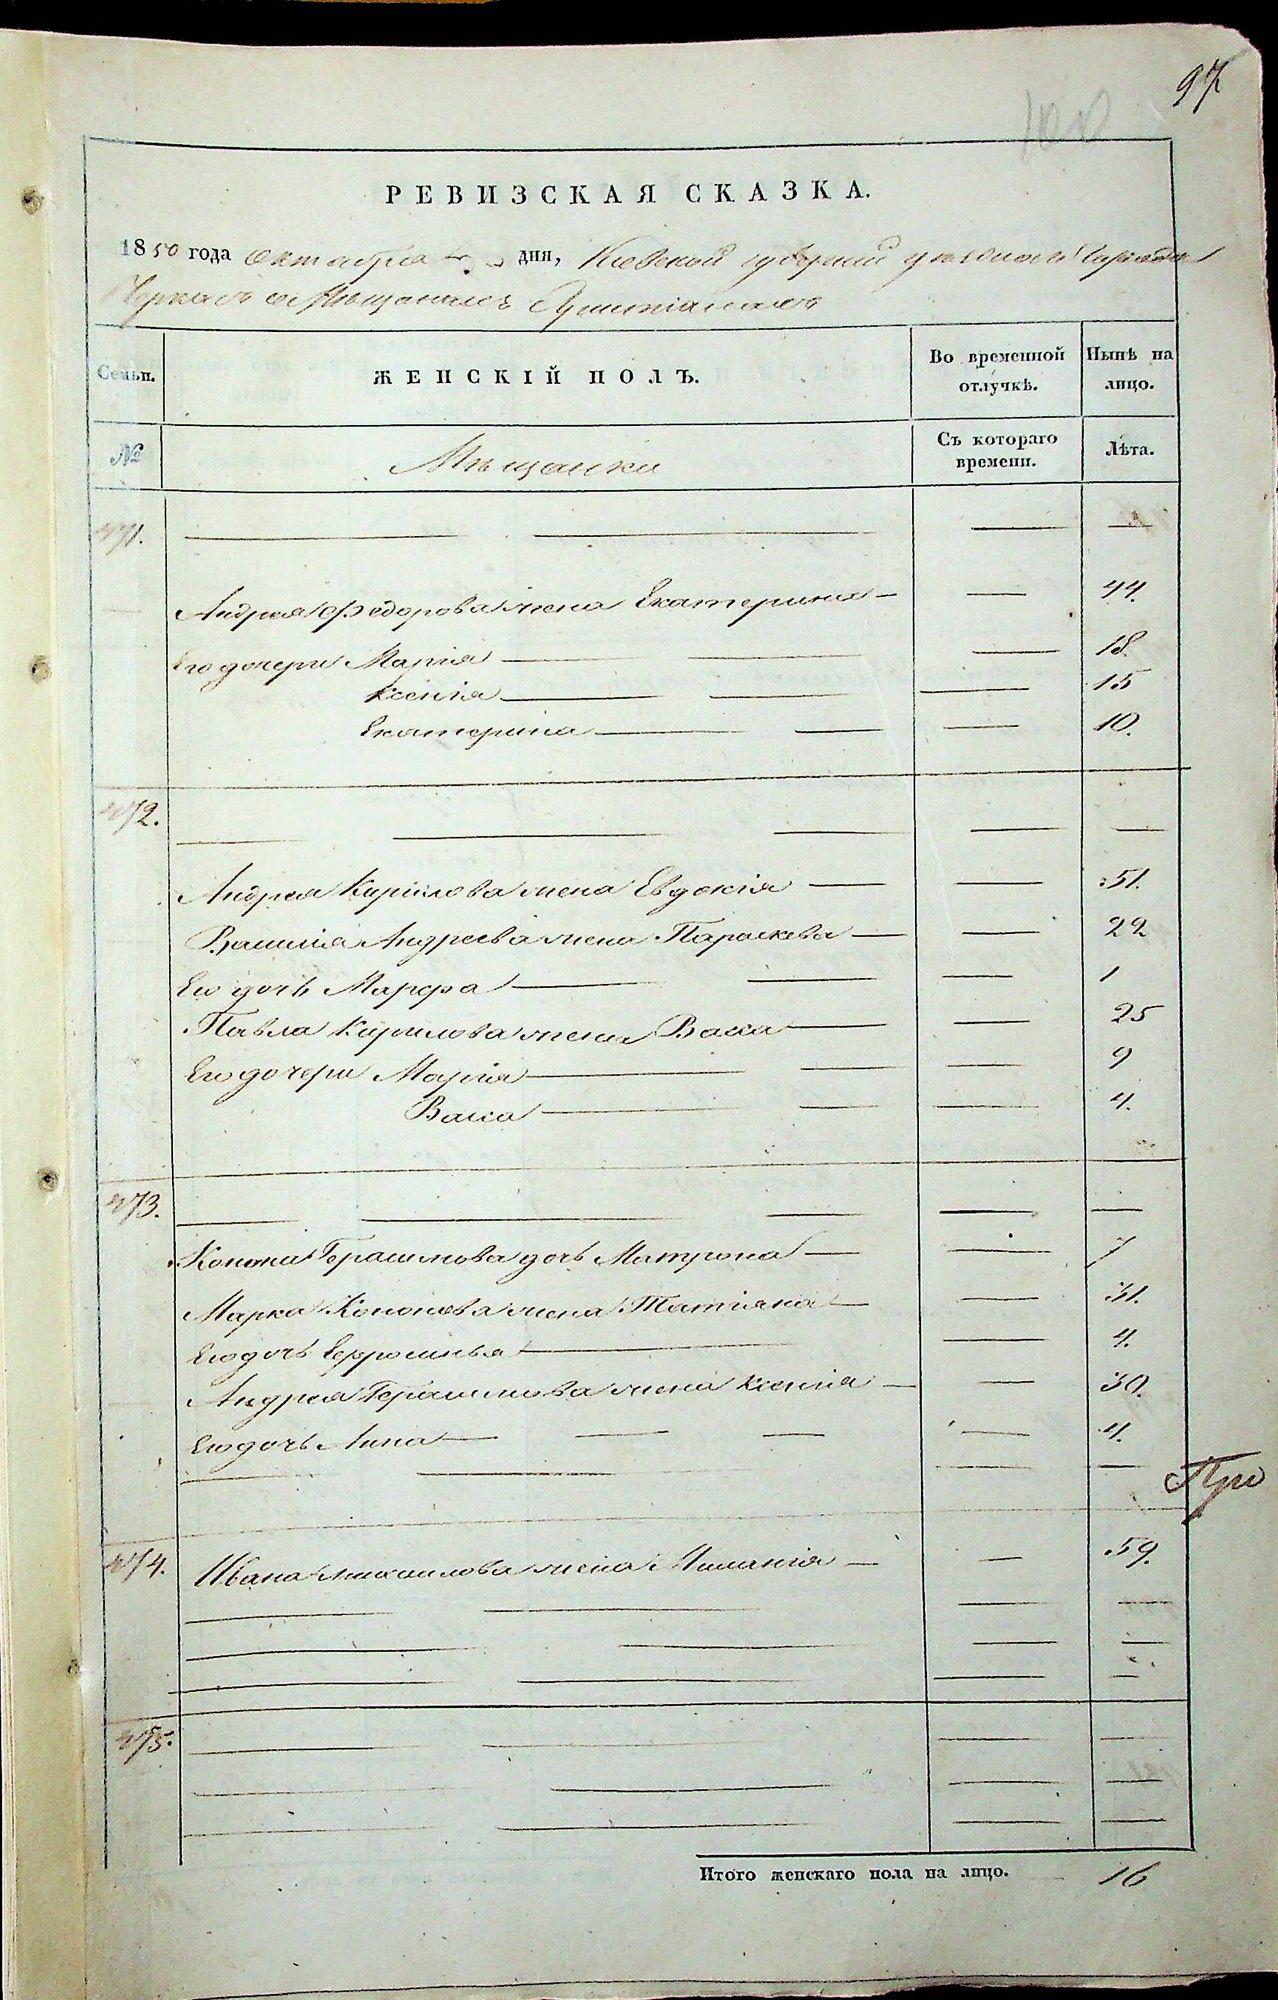 97
100
РЕВИЗСКАЯ СКАЗКА.
1850 года октября дня, Киевской губернии уезднаго города
Черкасъ о Мещанахъ Христіанахъ
Семьи. ЖЕНСКІЙ ПОЛЪ. Во временной отлучкѣ. Нынѣ на лицо.
№ Мещанки Съ котораго времени. Лѣта.
471.
Андрея Федорова жена Екатерина 44.
Его дочери Марія 18.
Ксенія 15
Екатерина 10.
472.
Андрея Кирилова жена Евдокія 51.
Василія Андреева жена Параскева 22
Его дочь Марфа 1
Павла Кирилова жена Васса 25
Его дочери Марія 9
Васса 4.
473.
Конона Герасимова дочь Матрона 7
Марка Кононова жена Татіяна 31.
Его дочь Ефросинья 4.
Андрея Герасимова жена Ксенія 30.
Его дочь Анна 4.
При
474. Ивана Михаилова жена Миланія 59.
475.
Итого женскаго пола на лицо. 16